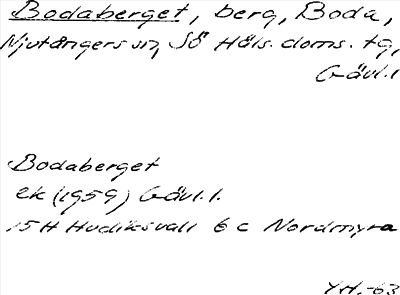 Bodaberget, berg, Boda,
Njutångers sn, Sö Häls. doms. tg,
Gävl.l
Bodaberget
ek (1959) Gävl.l.
15H Hudiksvall 6 c Nordmyra
YH.-63